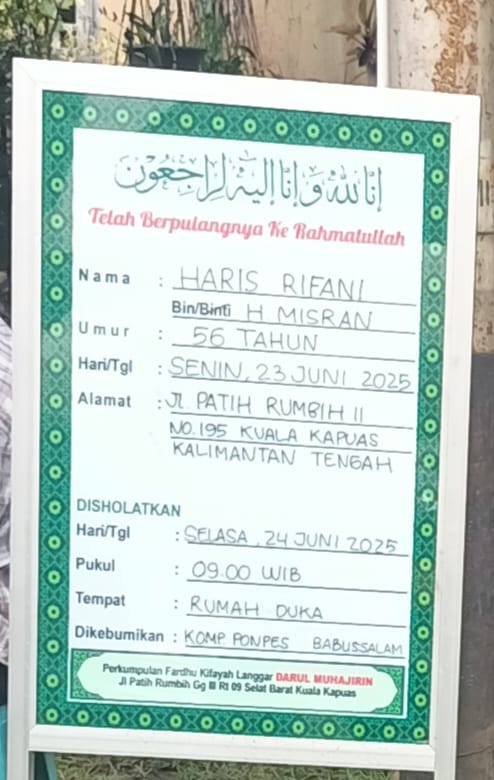 إنا لله وإنا إليه لراجعون
Telah Berpulangnya Ke Rahmatullah
Nama : HARIS RIFANI
Bin/Binti H. MISRAN
Umur : 56 TAHUN
Hari/Tgl : SENIN, 23 JUNI 2025
Alamat : JL. PATIH RUMBIH II
NO.195 KUALA KAPUAS
KALIMANTAN TENGAH
DISHOLATKAN
Hari/Tgl : SELASA, 24 JUNI 2025
Pukul : 09.00 WIB
Tempat : RUMAH DUKA
Dikebumikan : KOMP. PONPES BABUSSALAM
Perkumpulan Fardhu Kifayah Langgar DARUL MUHAJIRIN
Jl Patih Rumbih Gg III Rt 09 Selat Barat Kuala Kapuas